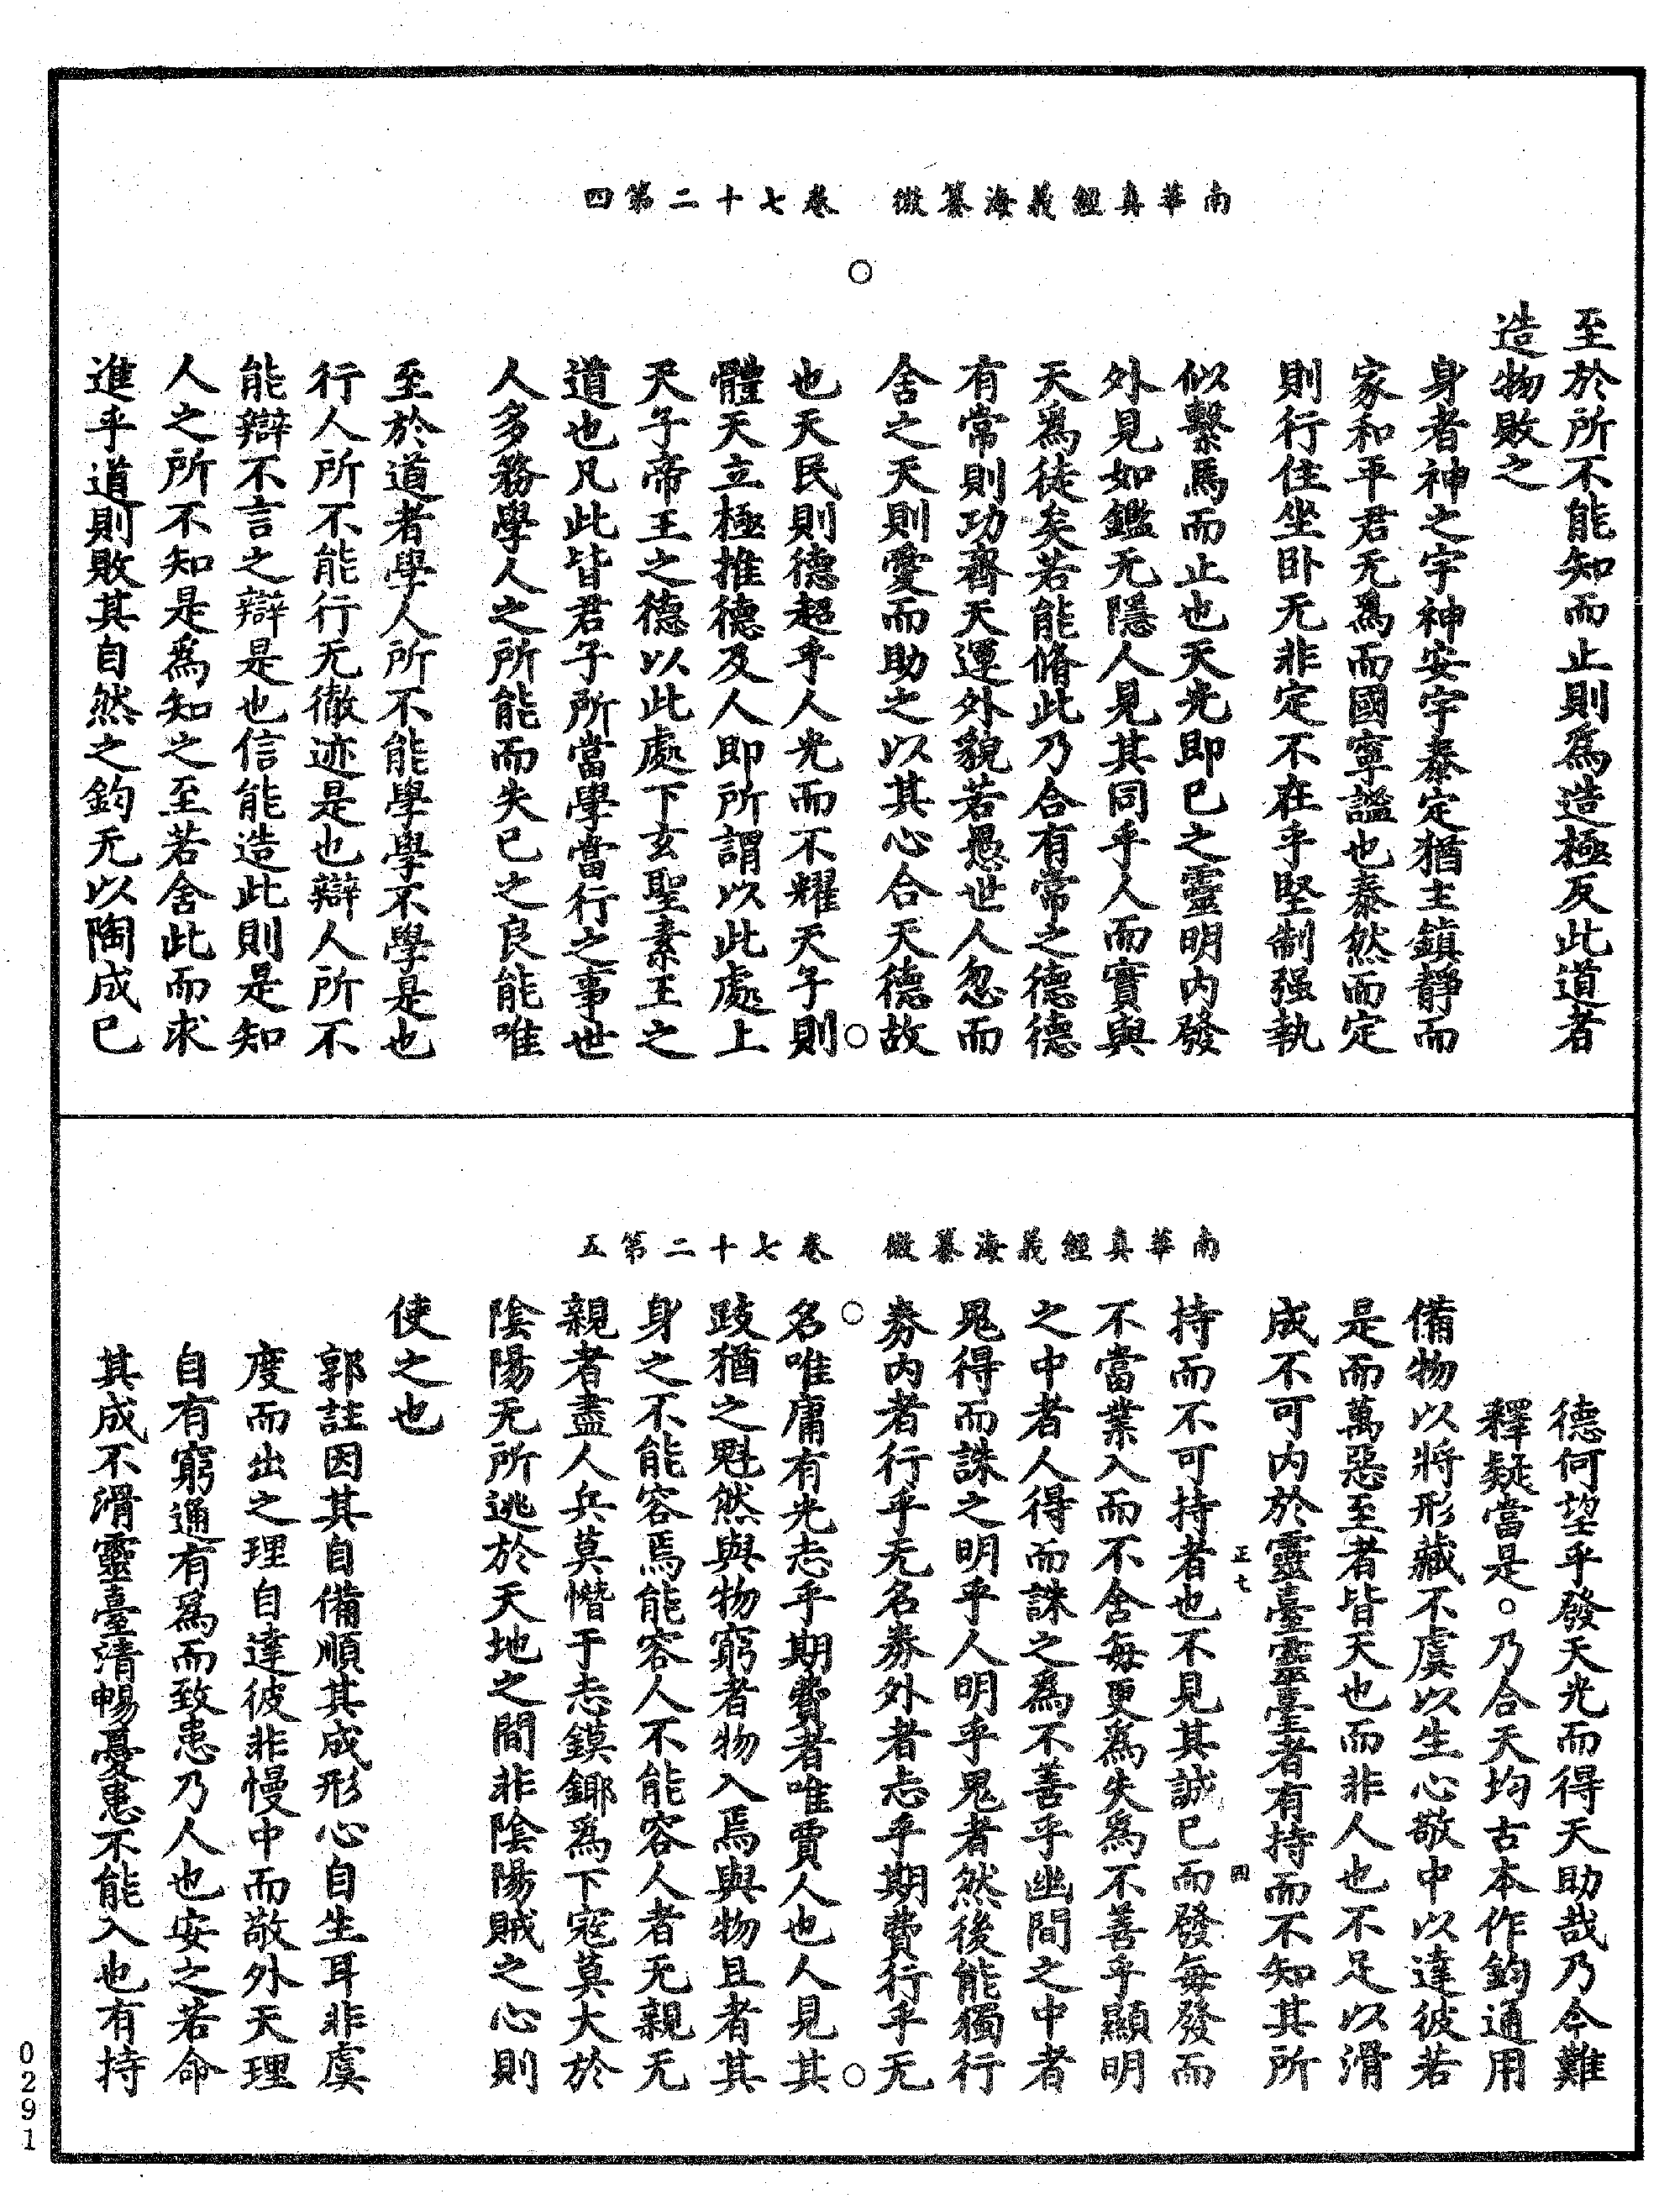 南華真經義海纂微　卷七十二第四
至於所不能知而止則爲造極反此道者
造物敗之
身者神之宇神安宇泰定猶主鎮靜而
家和平君无爲而國寧謐也泰然而定
則行住坐卧无非定不在乎堅制强執
似繫馬而止也天光即已之靈明内發
外見如鑑无隱人見其同乎人而實與
天爲徒矣若能脩此乃合有常之德德
有常則功齊天運外貌若愚世人忽而
舍之天則愛而助之以其心合天德故
也天民則德超乎人光而不耀天子則
體天立極推德及人即所謂以此處上
天子帝王之德以此處下玄聖素王之
道也凡此皆君子所當學當行之事世
人多務學人之所能而失已之良能唯
至於道者學人所不能學學不學是也
行人所不能行行无徹迹是也辯人所不
能辯不言之辯是也信能造此則是知
人之所不知是爲知之至若舍此而求
進乎道則敗其自然之鈞无以陶成已
南華真經義海纂微　卷七十二第五
德何望乎發天光而得天助哉乃今難
釋疑當是。乃合天均古本作鈞通用
備物以將形藏不虞以生心敬中以達彼若
是而萬惡至者皆天也而非人也不足以滑
成不可内於靈臺靈臺者有持而不知其所
持而不可持者也不見其誠已而發每發而
不當業入而不舍每更爲失爲不善乎顯明
之中者人得而誅之爲不善乎幽間之中者
鬼得而誅之明乎人明乎鬼者然後能獨行
券内者行乎无名券外者志乎期費行乎无
名唯庸有光志乎期費者唯賈人也人見其
跂猶之魁然與物窮者物入焉與物且者其
身之不能容焉能容人不能容人者无親无
親者盡人兵莫憯于志鏌鎁爲下寇莫大於
陰陽无所逃於天地之間非陰陽賊之心則
使之也
郭註因其自備順其成形心自生耳非虞
度而出之理自達彼非慢中而敬外天理
自有窮通有爲而致患乃人也安之若命
其成不滑靈臺清暢憂患不能入也有持
正七
0291